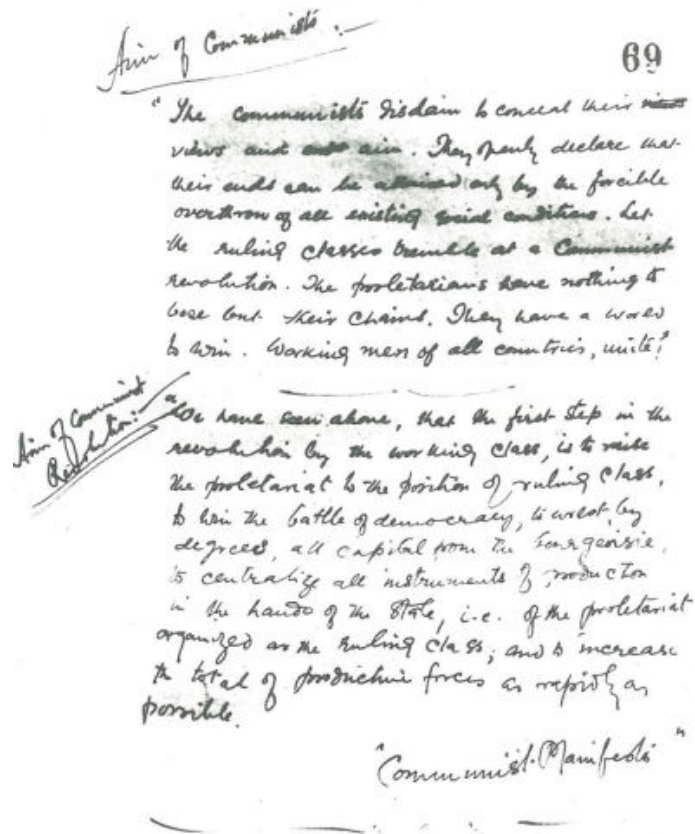 Aim of Communists :-
69
"The communists disdain to conceal their
views and aim. They openly declare that
their ends can be attained only by the forcible
overthrow of all existing social conditions. Let
the ruling classes tremble at a Communist
revolution. The proletarians have nothing to
lose but their chains. They have a world
to win. Working men of all countries, unite!"
Aim of Communist
Revolution:-
"We have seen above, that the first step in the
revolution by the working class, is to raise
the proletariat to the position of ruling class,
to win the battle of democracy, to wrest, by
degrees, all capital from the bourgeoisie,
to centralize all instruments of production
in the hands of the State, i.e. of the proletariat
organized as the ruling class; and to increase
the total of productive forces as rapidly as
possible.
"Communist Manifesto"